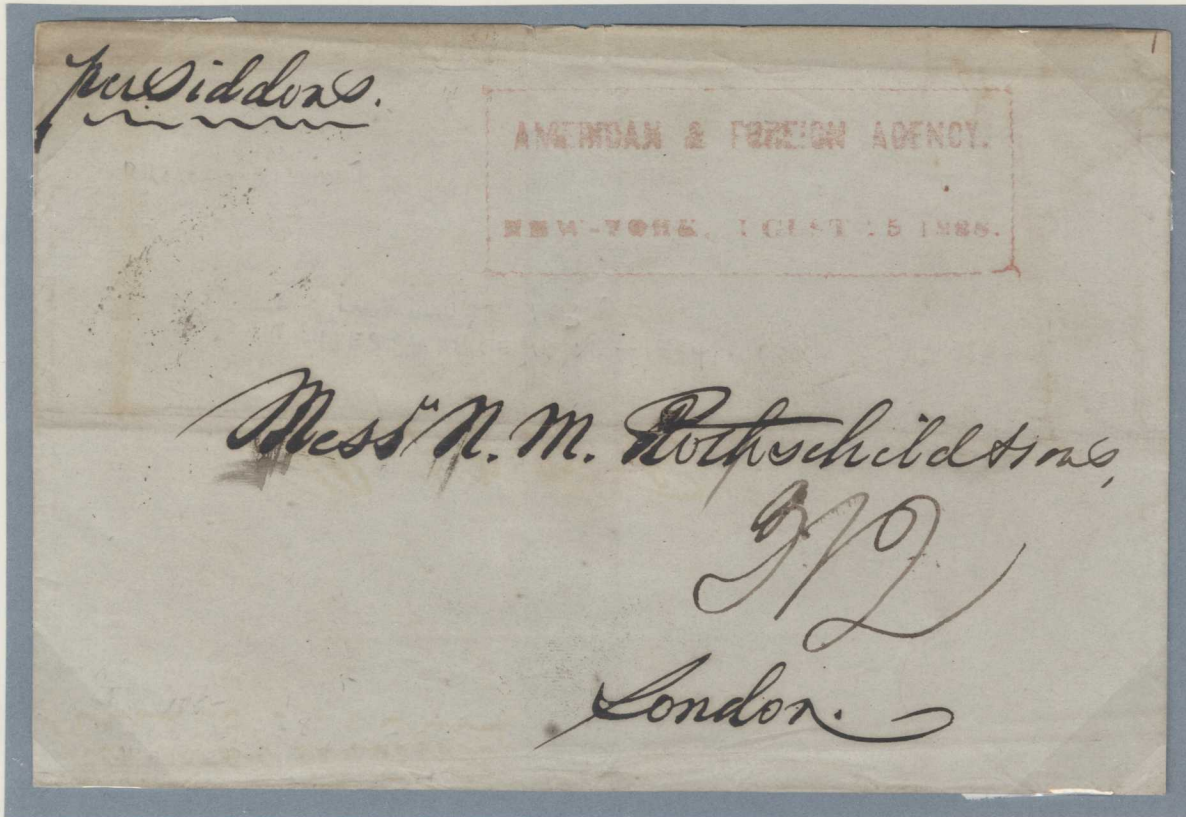 per Siddons.
AMERICAN & FOREIGN AGENCY.
NEW-YORK, 1838.
Messrs N. M. Rothschild & Sons,
London.